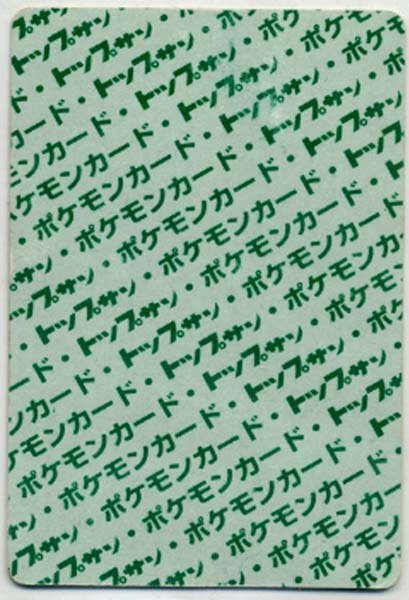 トップサン・ポケモ
ド・トップサン・ポケモン
カード・トップサン・ポケモ
モンカード・トップサン・ポケ
ケモンカード・トップサン・
・ポケモンカード・トップサン
サン・ポケモンカード・トップサン
プサン・ポケモンカード・トップ
・トップサン・ポケモンカード・
ド・トップサン・ポケモンカード
ンカード・トップサン・ポケモンカ
モンカード・トップサン・ポケモン
ポケモンカード・トップサン・ポケ
サン・ポケモンカード・トップサン
ップサン・ポケモンカード・
トップサン・ポケモンカード
ポケモン